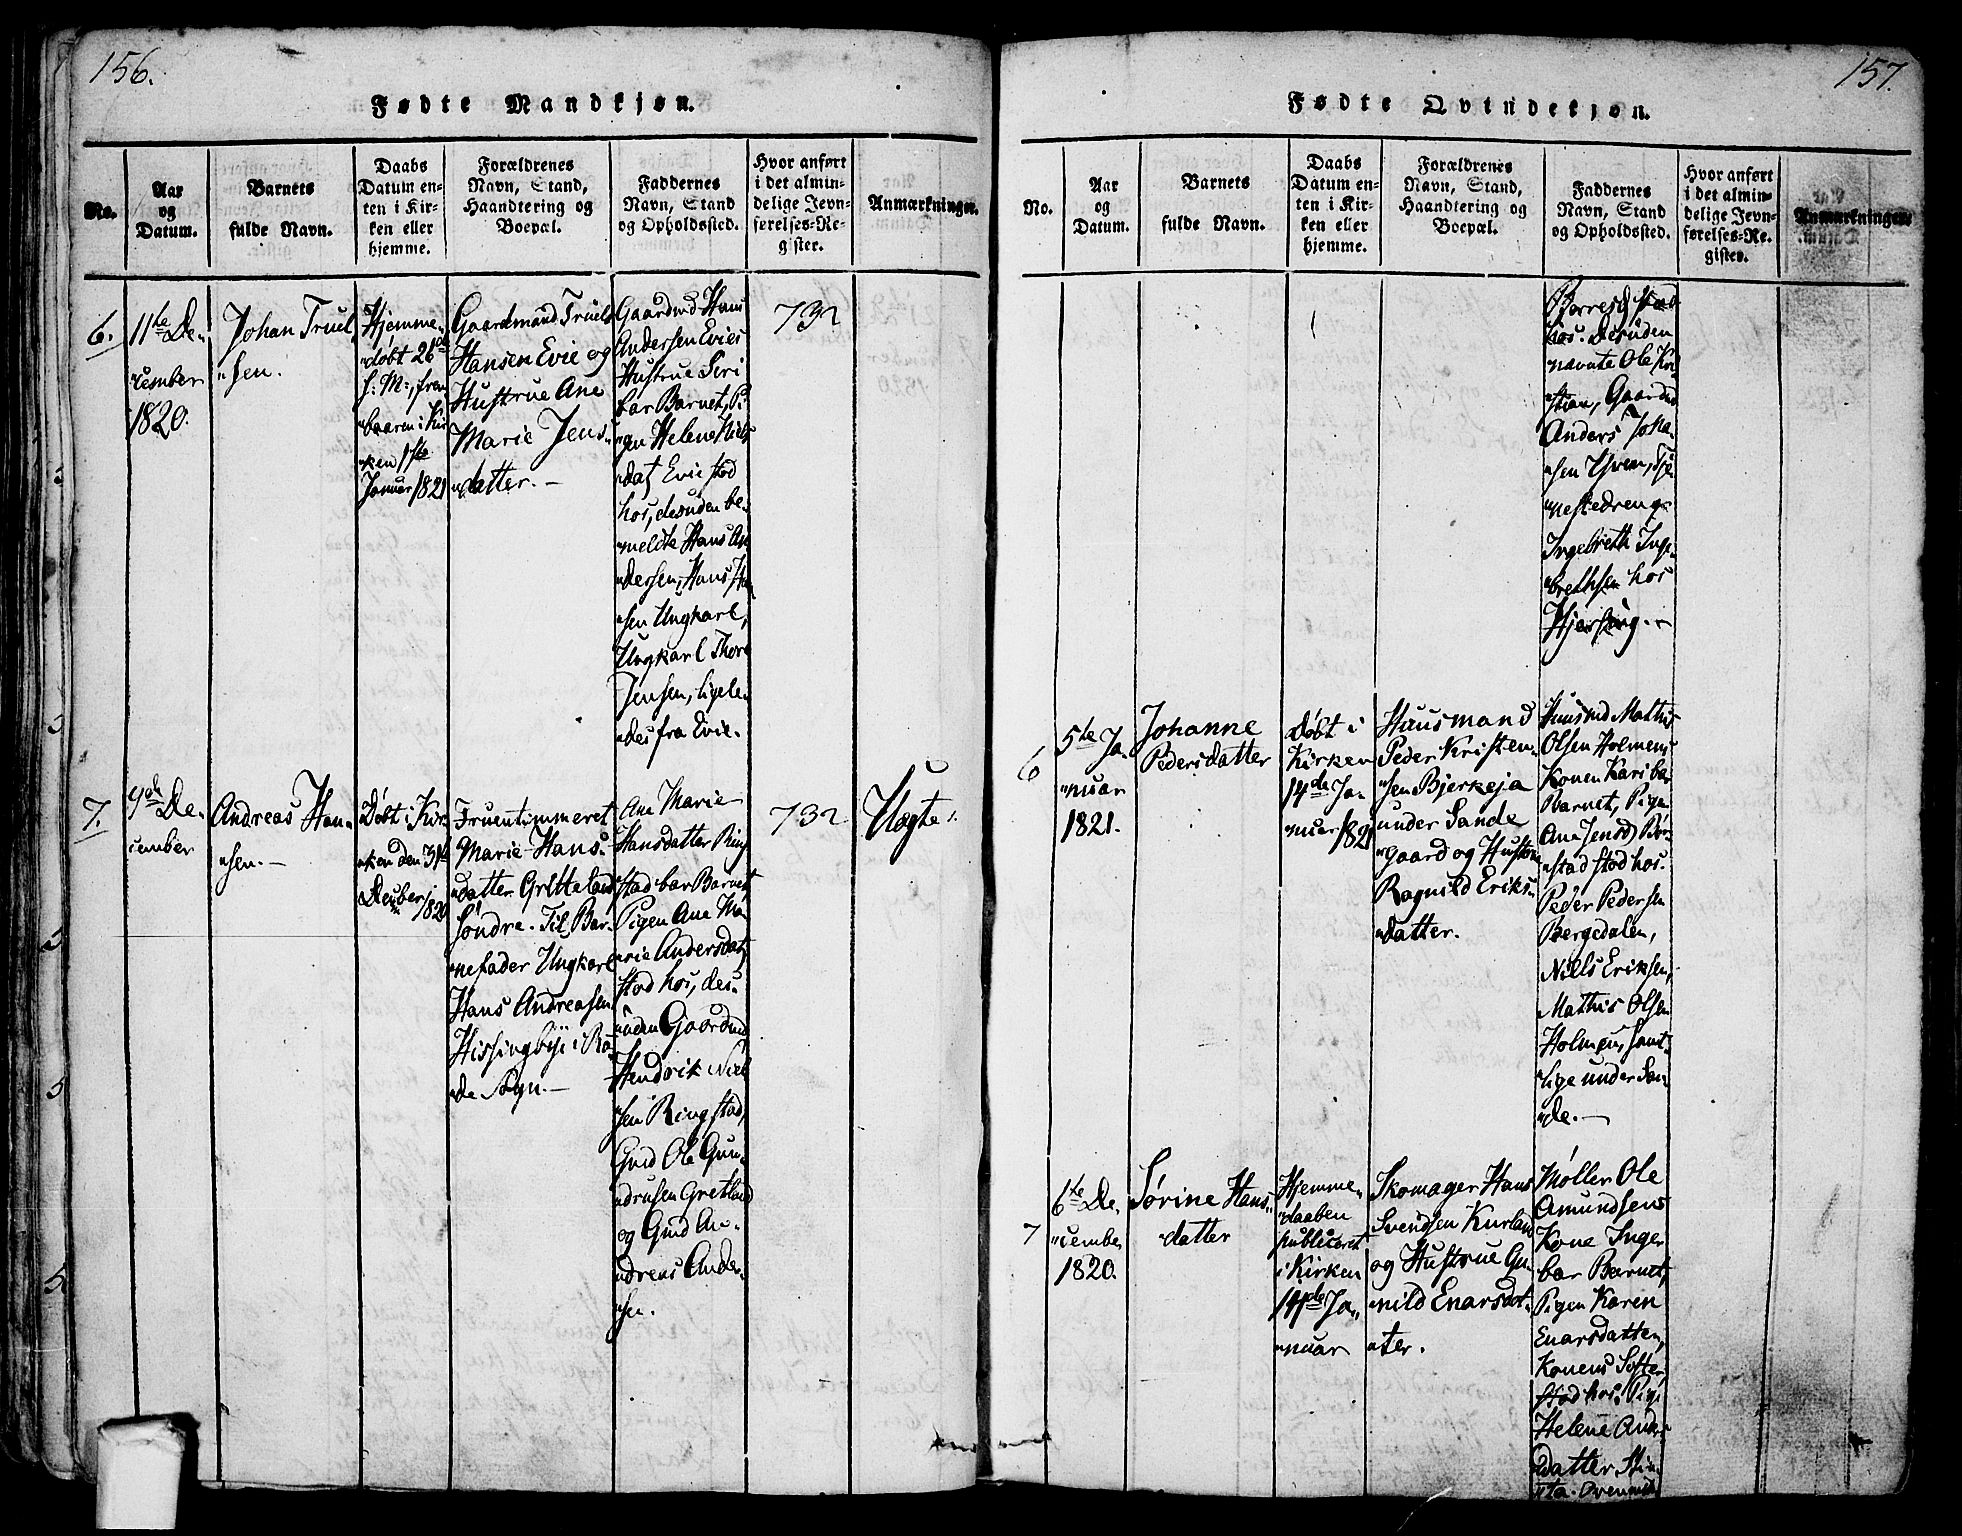 156.
Fødte Mandkjøn.
No.
Aar
og
Datum.
Barnets
fulde Navn.
Daabs
Datum en-
ten i Kir-
ken eller
hjemme.
Forældrenes
Navn, Stand,
Haandtering og
Boepæl.
Faddernes
Navn, Stand
og Opholdssted.
Hvor anført
i det almin-
delige Jevn-
førelses-Re-
gister.
Anmærkninger.
6.
11te De-
cember
1820.
Johan Truel
sen.
Hjemme-
døbt 26de
s. M:, frem
baaren i Kir
ken 1ste
Januar 1821
Gaardmand Truels
Hansen Evie og
Hustrue Ane
Marie Jens-
datter.
Gaardmd Hans
Andersen Evies
Hustrue Siri
bar Barnet, Pi
gen Helene Niels
dat Evie stod
hos, desuden be-
meldte Hans An
dersen, Hans Han
sen Ungkarl,
Ungkarl Thore
Jensen, ligele-
des fra Evie.
732
7.
9de De-
cember
Andreas Han-
sen.
Døbt i Kir
ken den 31te
Decber 1820
Fruentimmeret
Marie Hans-
datter Gretteland
Søndre. Til Bar-
nefader Ungkarl
Hans Andreasen
Hissingbye i Ra-
de Sogn.
Ane Marie
Hansdatter Ring
stad bar Barnet,
Pigen Ane Ma
rie Andersdat
stod hos, des-
uden Gaardmd
Hendrik Niel
sen Ringstad,
Gmd Ole Gun-
drusen Gretland
og Gmd An-
dreas Ander-
sen.
732
Uægte.
157.
Fødte Qvindekjøn.
No.
Aar
og
Datum.
Barnets
fulde Navn.
Daabs
Datum en-
ten i Kir-
ken eller
hjemme.
Forældrenes
Navn, Stand,
Haandtering og
Boepæl.
Faddernes
Navn, Stand
og Opholdssted.
Hvor anført
i det almin-
delige Jevn-
førelses-Re-
gister.
Anmærkninger.
stod
hos. Desuden
navnte Ole Kri-
stian, Gaardmd
Anders Joha-
sen Hven, Tje-
nestedreng
Ingebreth Inge-
brethsen hos
6
5te Ja-
nuar
1821.
Johanne
Pedersdatter
Døbt i
Kirken
14de Ja-
nuar 1821
Huusmand
Peder Kristen-
sen Bjerkeja
under Sande
gaard og Hustru
Ragnild Eriks-
datter.
Huusmd Mathis
Olsen Holmens
Konen Kari bar
Barnet, Pigen
Ane Jensd: Bør-
stad stod hos.
Peder Pedersen
Bergedalen,
Niels Eriksen,
Mathis Olsen
Holmen, samt-
lige under San-
de.
7
6te De-
cember
1820.
Sørine Hans-
datter
Hjemme-
daaben
publiceret
i Kirken
14de Ja-
nuar
Skomager Hans
Svendsen Kurland
og Hustrue Gu-
nild Enarsdat-
ter.
Møller Ole
Amundsens
Kone Inger
bar Barnet,
Pigen Karen
Enarsdatter,
Konens Søster
stod hos. Pige
Helene Anders
datter